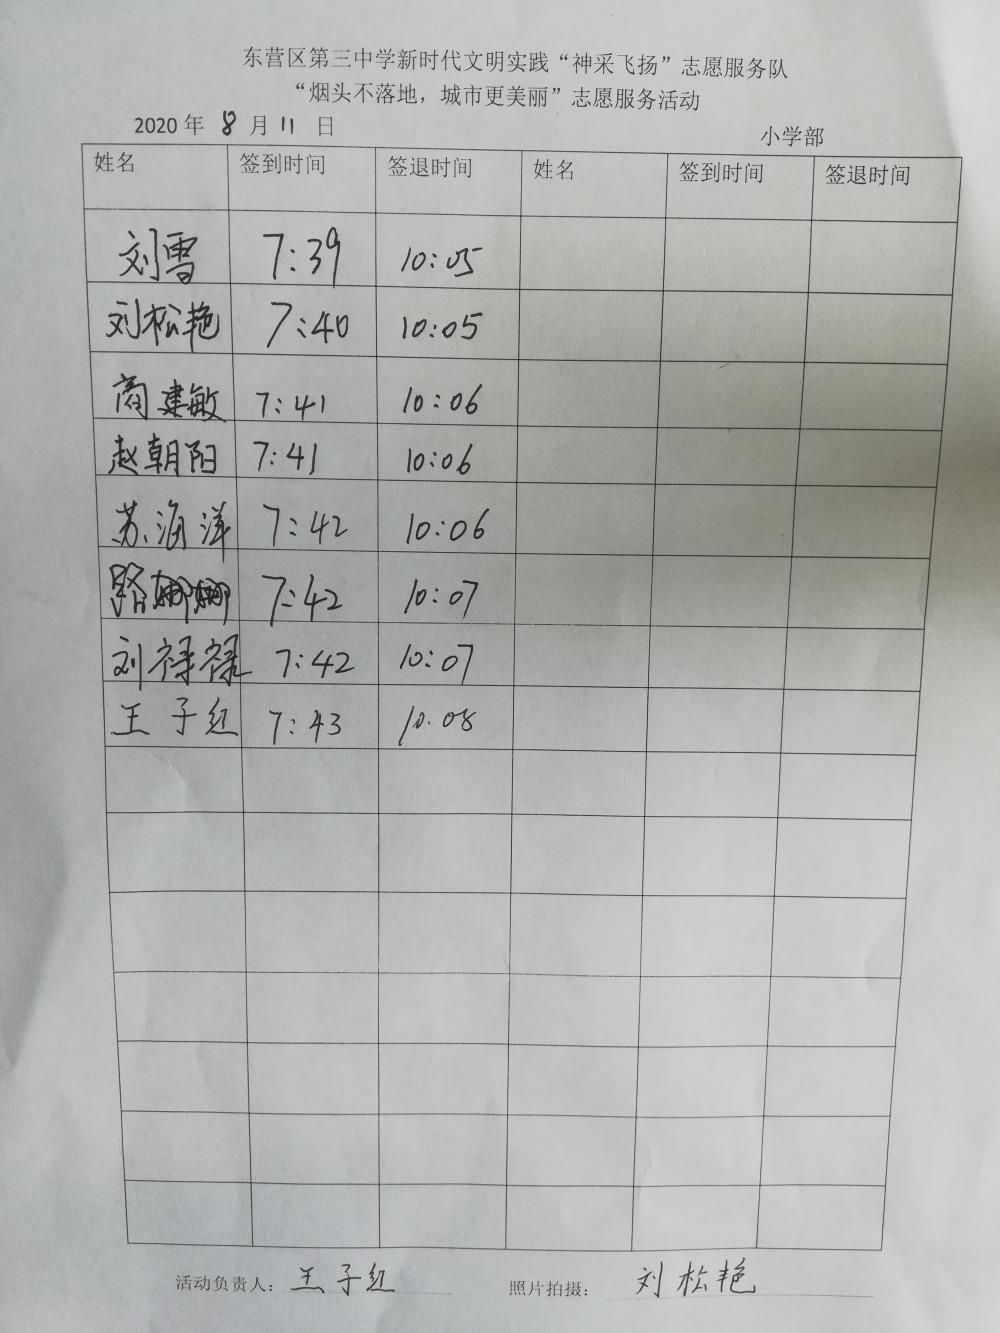 东营区第三中学新时代文明实践“神采飞扬”志愿服务队
“烟头不落地，城市更美丽”志愿服务活动
2020 年 8 月 11 日 小学部
姓名 签到时间 签退时间 姓名 签到时间 签退时间
刘雪 7:39 10:05
刘松艳 7:40 10:05
商建敏 7:41 10:06
赵朝阳 7:41 10:06
苏海洋 7:42 10:06
路娜娜 7:42 10:07
刘禄禄 7:42 10:07
王子红 7:43 10:08
活动负责人：王子红 照片拍摄：刘松艳